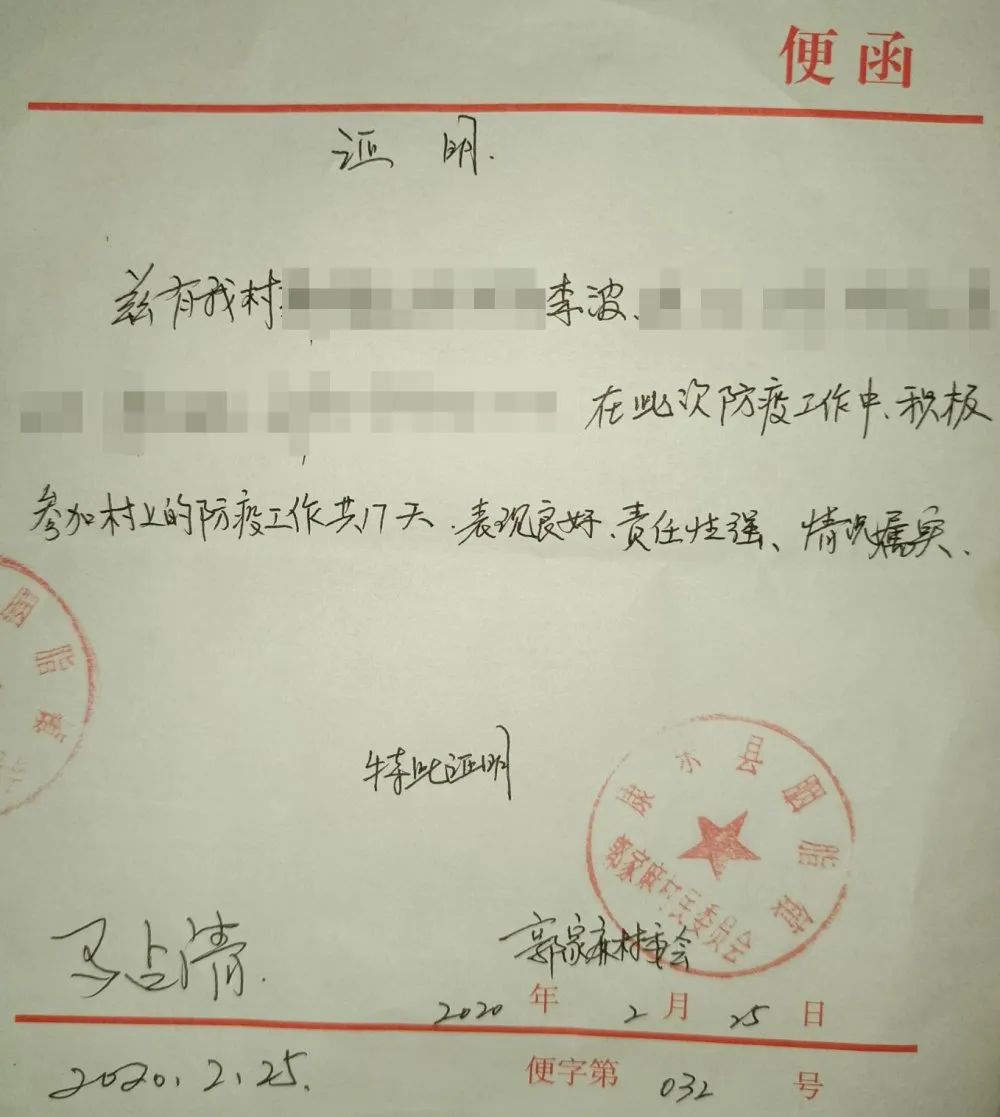 便函
证明.
兹有我村 李波、
在此次防疫工作中、积极
参加村上的防疫工作共17天、表现良好、责任性强、情况属实、
特此证明
胭脂镇
康乐县胭脂镇
郭家麻村民委员会
马占清.
郭家麻村委会
2020年2月25日
2020.2.25.
便字第032号